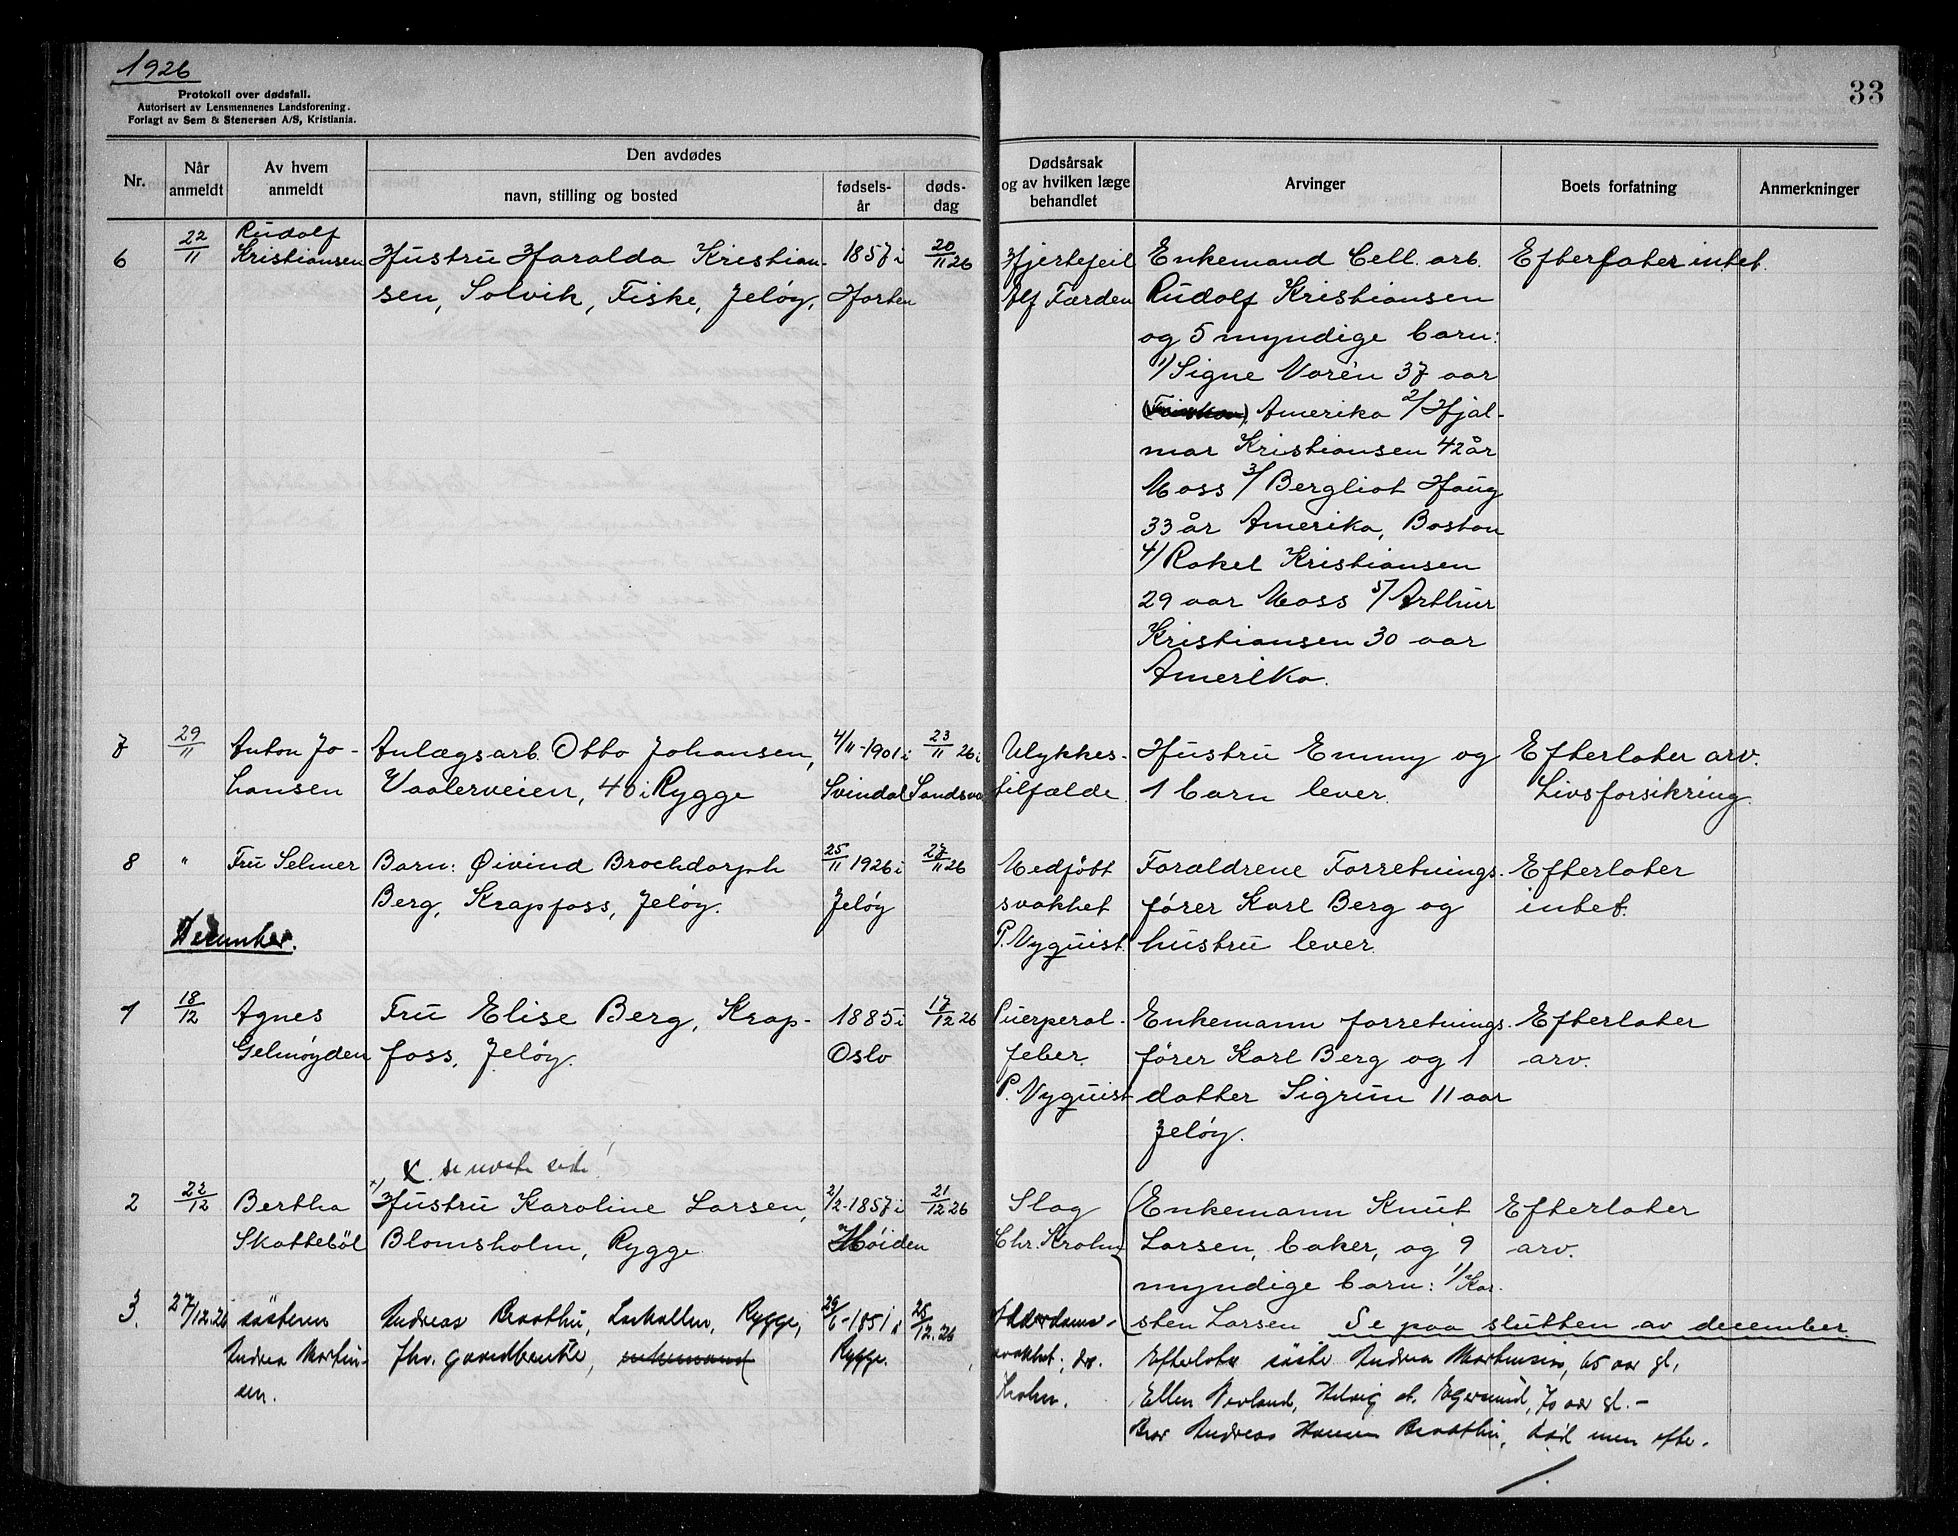 1926
Protokoll over dødsfall.
Autorisert av Lensmennenes Landsforening.
Forlagt av Sem & Stenersen A/S, Kristiania.
33
Nr.
Når anmeldt
Av hvem anmeldt
Den avdødes
navn, stilling og bosted
fødselsår
dødsdag
Dødsårsak og av hvilken læge behandlet
Arvinger
Boets forfatning
Anmerkninger
6
22/11
Rudolf
Kristiansen
Hustru Haralda Kristian-
sen, Solvik, Fiske, Jeløy,
1857 i
Horten
20/11 26
Hjertefeil
Alf Færden
Enkemand Cell. arb.
Rudolf Kristiansen
og 5 myndige barn:
1/ Signe Norén 37 aar
Amerika 2/ Hjal-
mar Kristiansen 42 år
Moss 3/ Bergliot Haug
33 år Amerika, Boston
4/ Rakel Kristiansen
29 aar Moss 5/ Arthur
Kristiansen 30 aar
Amerika.
Efterlater intet.
7
29/11
Anton Jo-
hansen
Anlægsarb. Otto Johansen,
Vaalerveien, 40 i Rygge
4/11-1901 i
Svindal
23/11 26 i
Sandsvær
Ulykkes-
tilfælde.
Hustru Emmy og
1 barn lever.
Efterlater arv.
Livsforsikring.
8
"
Fru Selmer
Barn: Øivind Brochdorph
Berg, Krapfoss, Jeløy.
25/11 1926 i
Jeløy
27/11 26
Medfödt
svakhet
P. Nyquist.
Forældrene Forretnings-
förer Karl Berg og
hustru lever.
Efterlater
intet.
December.
1
18/12
Agnes
Gelmöyden
Fru Elise Berg, Krap-
foss, Jeløy.
1885 i
Oslo
17/12 26
Puerperal-
feber.
P. Nyquist
Enkemann forretnings-
förer Karl Berg og 1
datter Sigrun 11 aar
Jeløy.
Efterlater
arv.
x. se neste side!
2
22/12
Bertha
Skattebøl
x) Hustru Karoline Larsen,
Blomsholm, Rygge
2/2-1857 i
Høiden
21/12 26
Slag
Chr. Krohn
Enkemann Knut
Larsen, baker, og 9
myndige barn: 1/ Kar-
sten Larsen Se paa slutten av december.
Efterlater
arv.
3.
27/12.26
søsteren
Andrea Martin-
sen.
Andreas Braathu, Rygge,
fhv. gaardbruker, enkemand
29/6-1851 i
Rygge.
25/12.26
Alderdoms-
svakhet; dr.
Krohn.
Efterlater søster Andrea Martinsen, 65 aar gl.
Ellen Nevland, Helvig st. Egersund, 70 aar gl.-
Bror Andreas Hansen Braathu, död men efte-